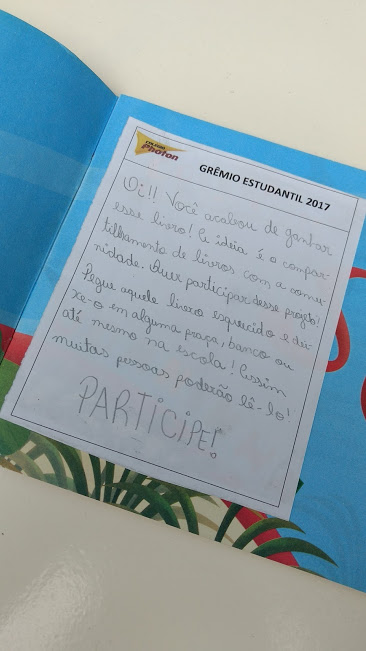 COLÉGIO
Photon
GRÊMIO ESTUDANTIL 2017
Oi!! Você acabou de ganhar
esse livro! A ideia é o compar-
tilhamento de livros com a comu-
nidade. Quer participar desse projeto?
Pegue aquele livro esquecido e dei-
xe-o em alguma praça, banco ou
até mesmo na escola! Assim
muitas pessoas poderão lê-lo!
PARTICIPE!